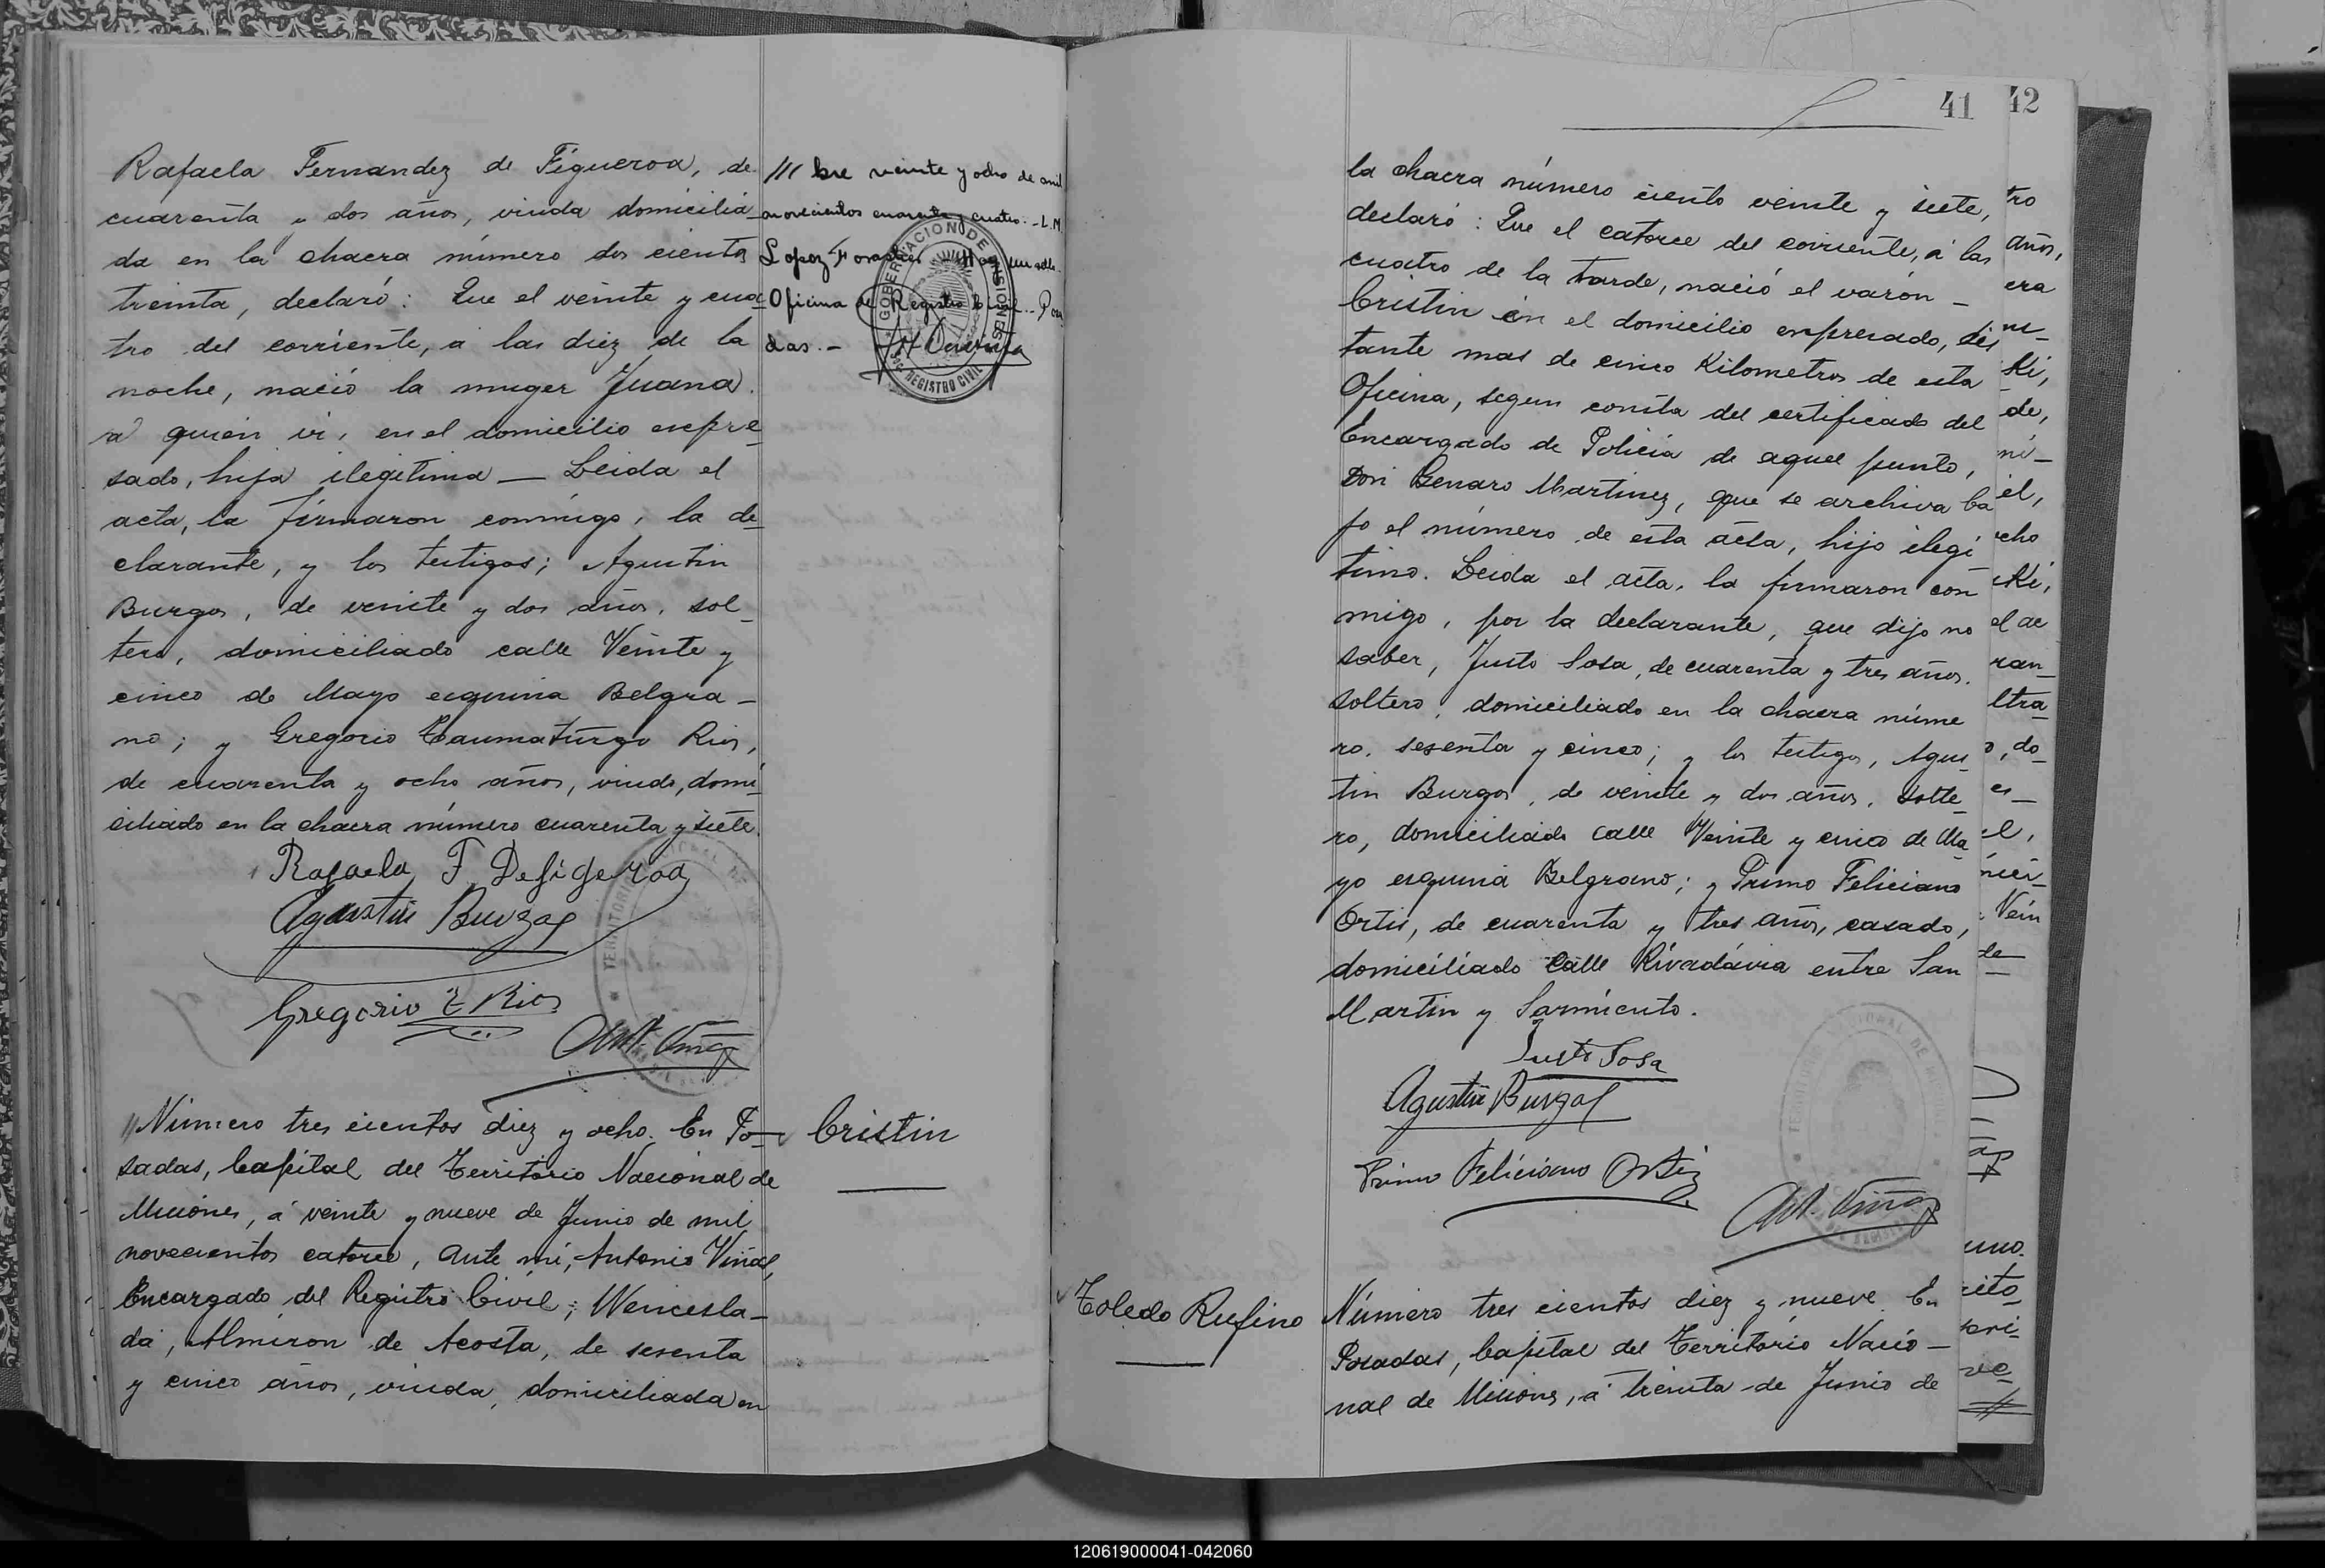 Rafaela Fernandez de Figueroa, de
cuarenta y dos años, viuda domicilia
da en la chacra número dos cientos
treinta, declaró: Que el veinte y cua
tro del corriente, a las diez de la
noche, nació la muger Juana
a quien vi, en el domicilio expre
sado, hija ilegitima — Leida el
acta, la firmaron conmigo, la de
clarante, y los testigos; Agustin
Burgos, de veinte y dos años, sol
tero, domiciliado calle Veinte y
cinco de Mayo esquina Belgra-
no; y Gregorio Taumaturgo Rios,
de cuarenta y ocho años, viudo, domi
ciliado en la chacra número cuarenta y siete.
Rafaela F Defigeroa
Agustin Burgos
Gregorio T Rios
Ant. Viñas
/// bre veinte y ocho de mil
novecientos cuarenta y cuatro.-L.M.
Lopez Hay un sello.
Oficina de Registro Civil.- Posa
das.-
GOBERNACION DE MISIONES
REGISTRO CIVIL
Número tres cientos diez y ocho. En Po-
sadas, Capital del Territorio Nacional de
Misiones, á veinte y nueve de Junio de mil
novecientos catorce, ante mi, Antonio Viñas,
Encargado del Registro Civil; Wencesla-
da, Almiron de Acosta, de sesenta
y cinco años, viuda, domiciliada en
Cristin
41
42
la chacra número ciento veinte y siete,
declaró: Que el catorce del corriente, á las
cuatro de la tarde, nació el varón -
Cristin en el domicilio expresado, dis
tante mas de cinco Kilometros de esta
Oficina, segun consta del certificado del
Encargado de Policia de aquel punto,
Don Genaro Martinez, que se archiva ba
jo el número de esta acta, hijo ilegi
timo. Leida el acta, la firmaron con
migo, por la declarante, que dijo no
saber, Justo Sosa, de cuarenta y tres años.
soltero, domiciliado en la chacra núme
ro. sesenta y cinco; y los testigos, Agus-
tin Burgos, de veinte y dos años, solte
ro, domiciliado calle Veinte y cinco de Ma
yo esquina Belgrano; y Primo Feliciano
Ortis, de cuarenta y tres años, casado,
domiciliado Calle Rivadavia entre San
Martin y Sarmiento.
Justo Sosa
Agustin Burgos
Primo Feliciano Ortiz
Ant. Viñas
Toledo Rufino
Número tres cientos diez y nueve. En
Posadas, Capital del Territorio Nacio-
nal de Misiones, á treinta de Junio de
tro
años,
era
Ki,
de,
ni-
el,
cho
Ki,
ran-
ltra-
, do-
es-
el,
Vein
de
uno.
120619000041-042060